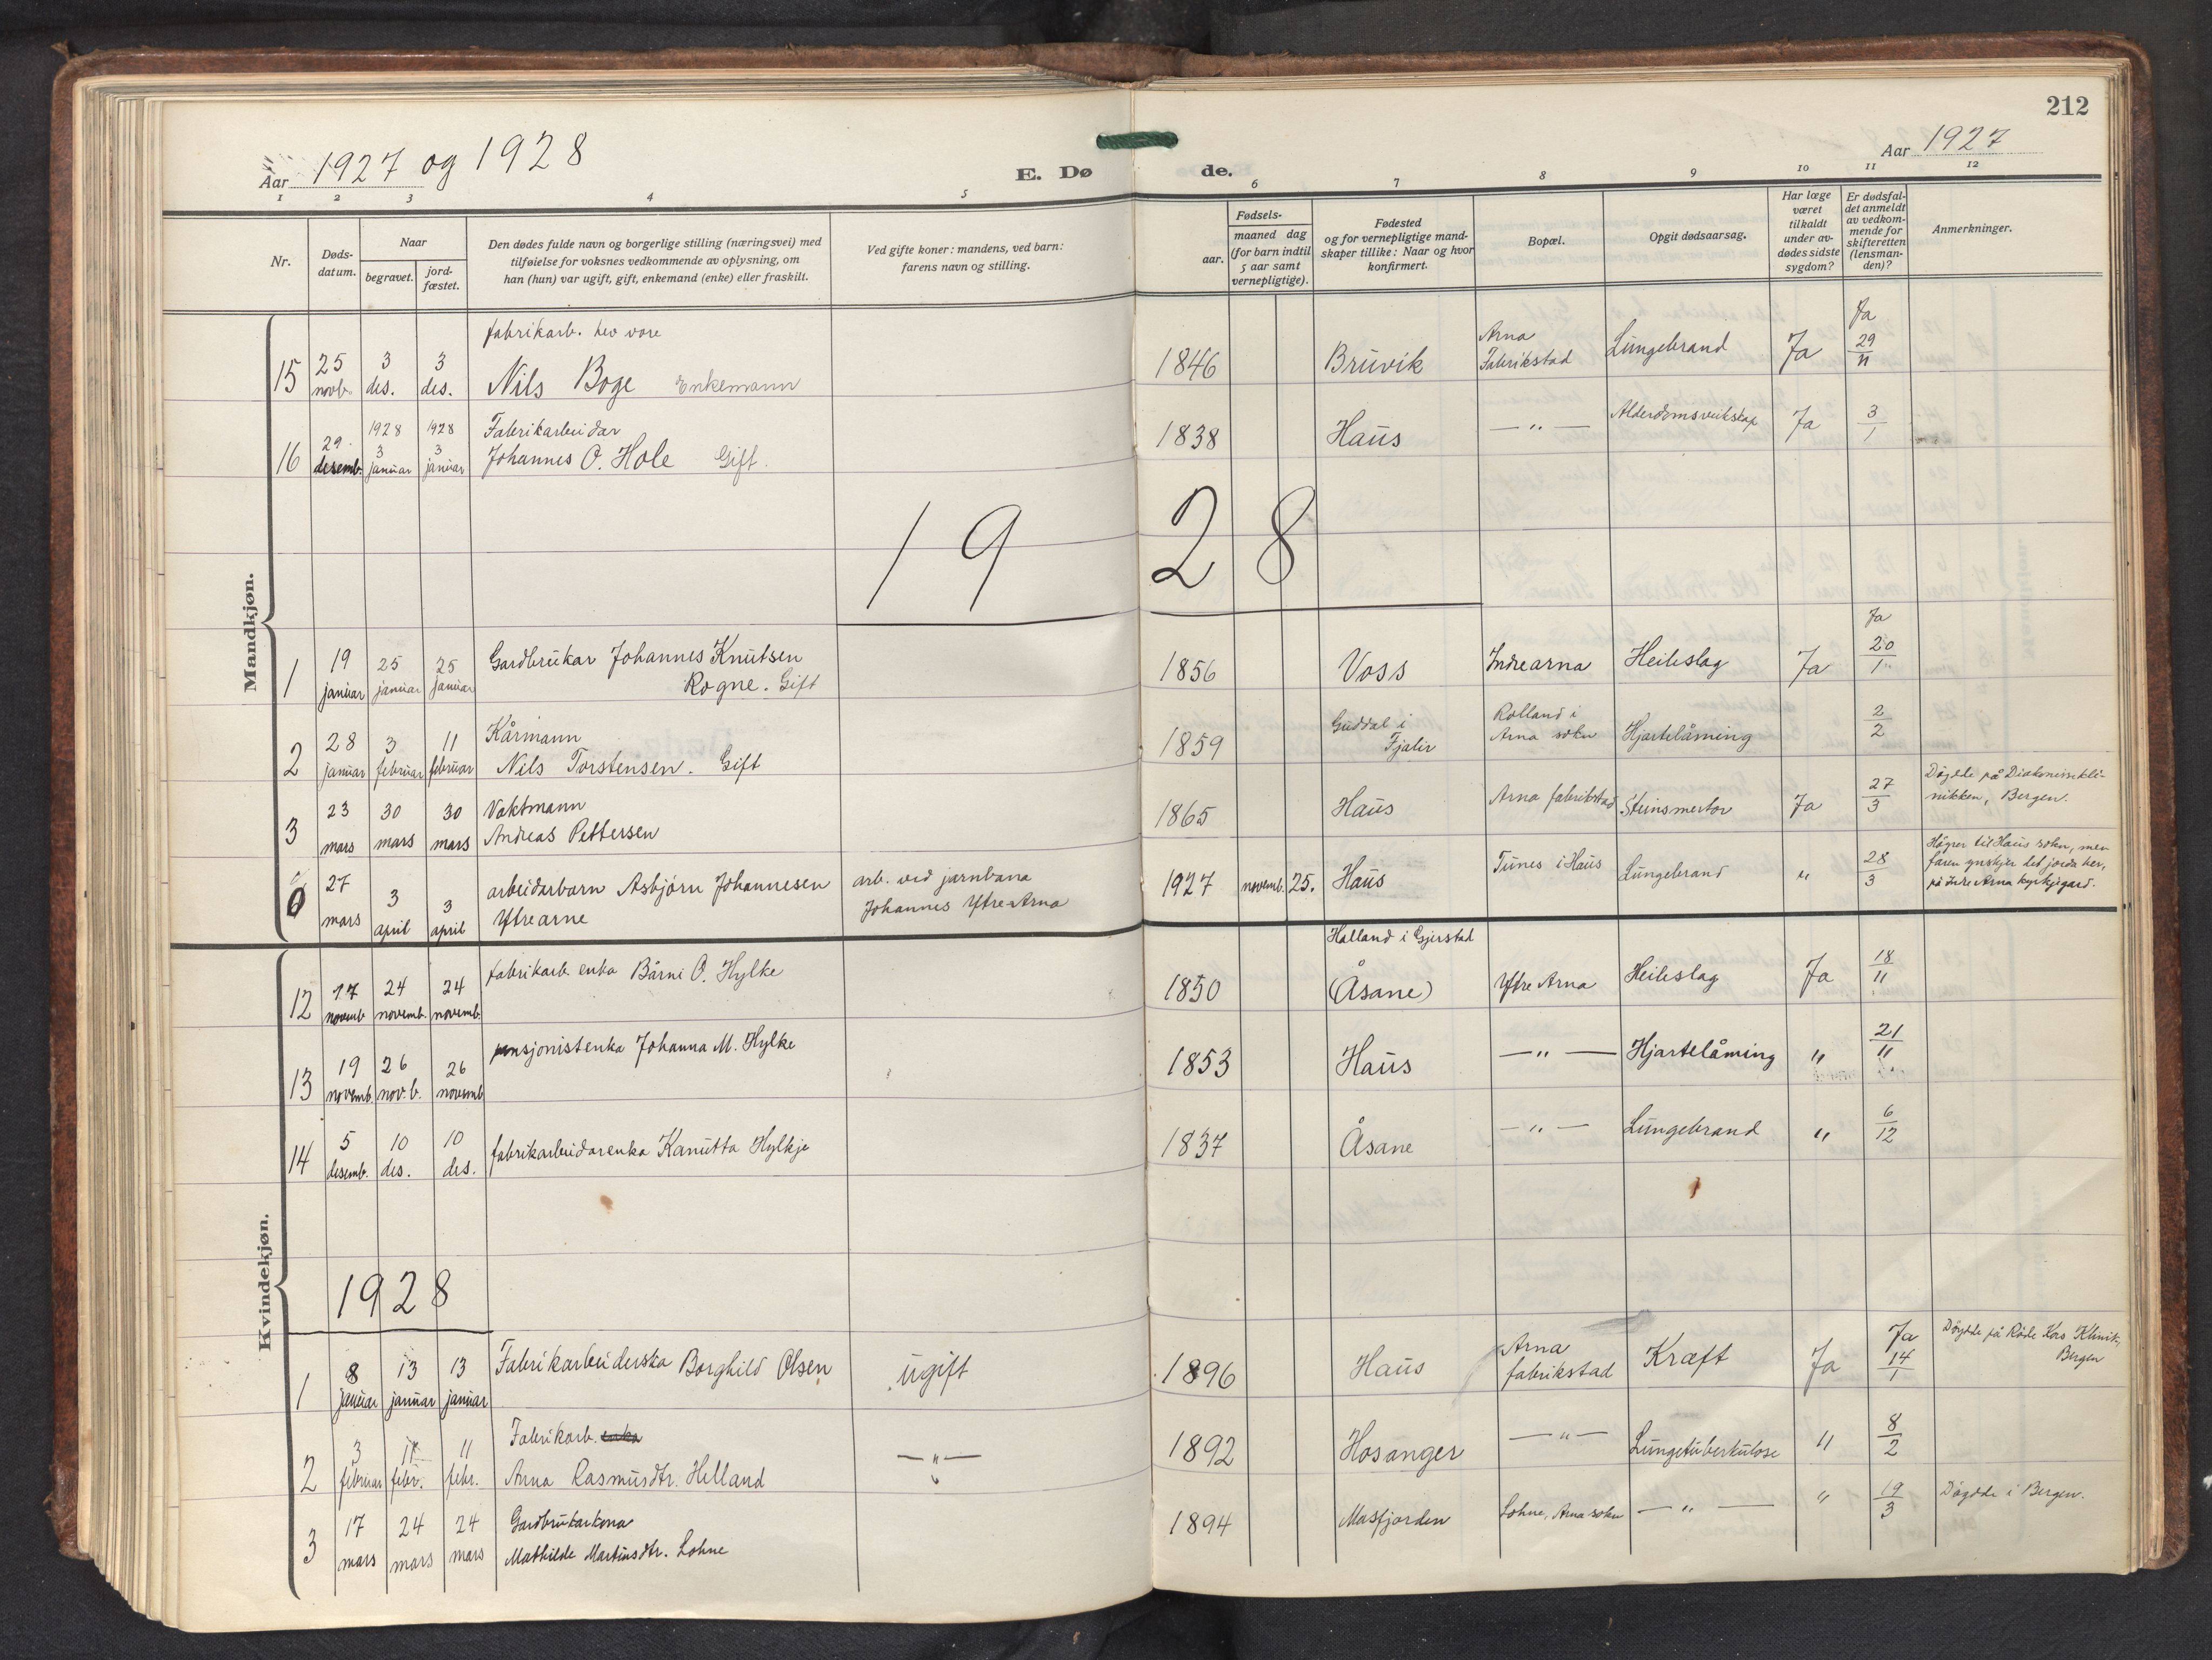 212
Aar 1927 og 1928
E. Dø de.
Aar 1927
1 2 3 4 5 6 7 8 9 10 11 12
Nr.
Døds-
datum.
Naar
begravet.
jord-
fæstet.
Den dødes fulde navn og borgerlige stilling (næringsvei) med
tilføielse for voksnes vedkommende av oplysning, om
han (hun) var ugift, gift, enkemand (enke) eller fraskilt.
Ved gifte koner: mandens, ved barn:
farens navn og stilling.
Fødsels-
aar.
maaned dag
(for barn indtil
5 aar samt
vernepligtige).
Fødested
og for vernepligtige mand-
skaper tillike: Naar og hvor
konfirmert.
Bopæl.
Opgit dødsaarsag.
Har læge
været
tilkaldt
under av-
dødes sidste
sygdom?
Er dødsfal-
det anmeldt
av vedkom-
mende for
skifteretten
(lensman-
den)?
Anmerkninger.
Mandkjøn.
fabrikarb. hev vore
15 25 novb. 3 des. 3 des. Nils Boge Enkemann 1846 Bruvik Arna Fabrikstad Lungebrand Ja Ja 29/11
Fabrikarbeidar
16 29. desemb. 1928 3 januar 1928 3 januar Johannes O. Hole Gift. 1838 Haus —"— Alderdomsveikskap Ja 3/1
1928
1 19 januar 25 januar 25 januar Gardbrukar Johannes Knutsen
Rogne. Gift 1856 Voss Indre arna Heileslag Ja Ja 20/1
2 28 januar 3 februar 11 februar Kårmann
Nils Torstensen. Gift 1859 Guddal i Fjaler Rolland i Arna sokn Hjartelåming 2/2
3 23 mars 30 mars 30 mars Vaktmann
Andreas Pettersen 1865 Haus Arna fabrikstad Steinsmertor Ja 27/3 Døydde på Diakonissekli-
nikken, Bergen.
0 27 mars 3 april 3 april arbeidarbarn Asbjørn Johannesen
Ytrearne arb. ved jarnbana
Johannes Ytre-Arna 1927 novemb. 25. Haus Tunes i Haus Lungebrand " 28/3 Høyrer til Haus sokn, men
faren ynskjer det jorda her,
på Indre Arna kyrkjegard.
Kvindekjøn.
12 17 novemb. 24 novemb. 24 novemb. fabrikarb. enka Bärni O. Hylke 1850 Halland i Gjerstad
(Åsane) Ytre Arna Heileslag Ja 18/11
13 19 novemb. 26 nov.b. 26 novemb. pensjonistenka Johanna M. Hylke 1853 Haus —"— Hjartelåming " 21/11
14 5 desemb. 10 des. 10 des. fabrikarbeidarenka Kanutta Hylkje 1837 Åsane —"— Lungebrand " 6/12
1928
1 8 januar 13 januar 13 januar Fabrikarbeiderska Borghild Olsen ugift 1896 Haus Arna fabrikstad Kræft Ja Ja 14/1 Døydde på Røde Kors Klinik,
Bergen
2 3 februar 11 febr. 11 febr. Fabrikarb. enka
Anna Rasmusdtr. Helland —"— 1892 Hosanger —"— Lungetuberkulose " 8/2
3 17 mars 24 mars 24 mars Gardbrukarkona
Mathilde Martinsdtr. Lohne 1894 Masfjorden Lohne, Arna sokn —"— " 19/3 Døydde i Bergen.